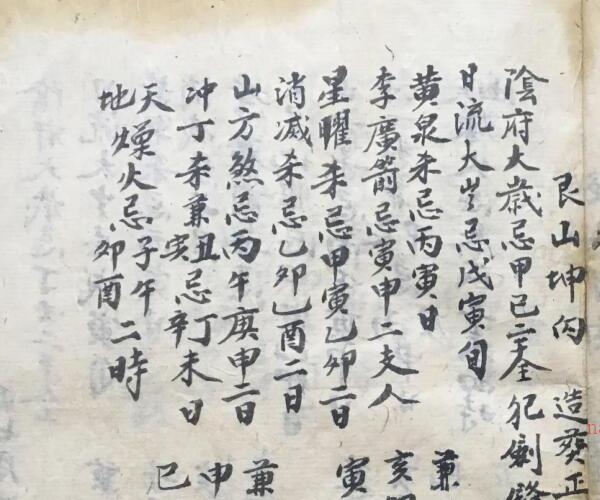 艮山坤向
造葬正
陰府大歳忌甲己二全犯劍鋒
日流大歲忌戊寅旬
黄泉杀忌丙寅日
李廣箭忌寅申二支人
星曜杀忌甲寅乙卯二日
消滅杀忌乙卯乙酉二日
山方煞忌丙午庚申二日
冲丁杀兼丑亥忌丁未辛日
天地燥火忌子午卯酉二時
兼亥
兼寅
申
巳